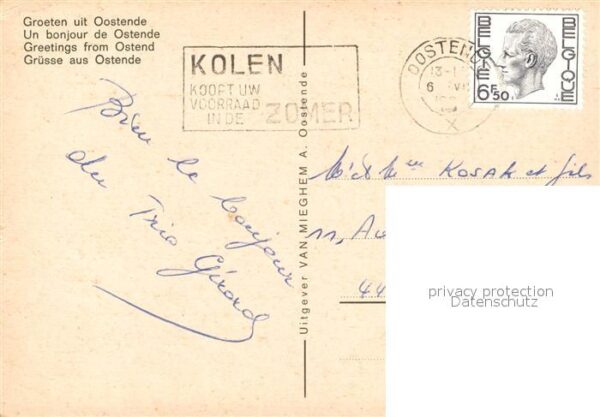 Groeten uit Oostende
Un bonjour de Ostende
Greetings from Ostend
Grüsse aus Ostende
KOLEN
KOOPT UW
VOORRAAD
IN DE ZOMER
OOSTENDE
13-
6
X
BELGIE
BELGIQUE
6F50
Bien le bonjour
du Trio Gérard
Uitgever VAN MIEGHEM A. Oostende
Kosak et fils
11, Av
44
privacy protection
Datenschutz